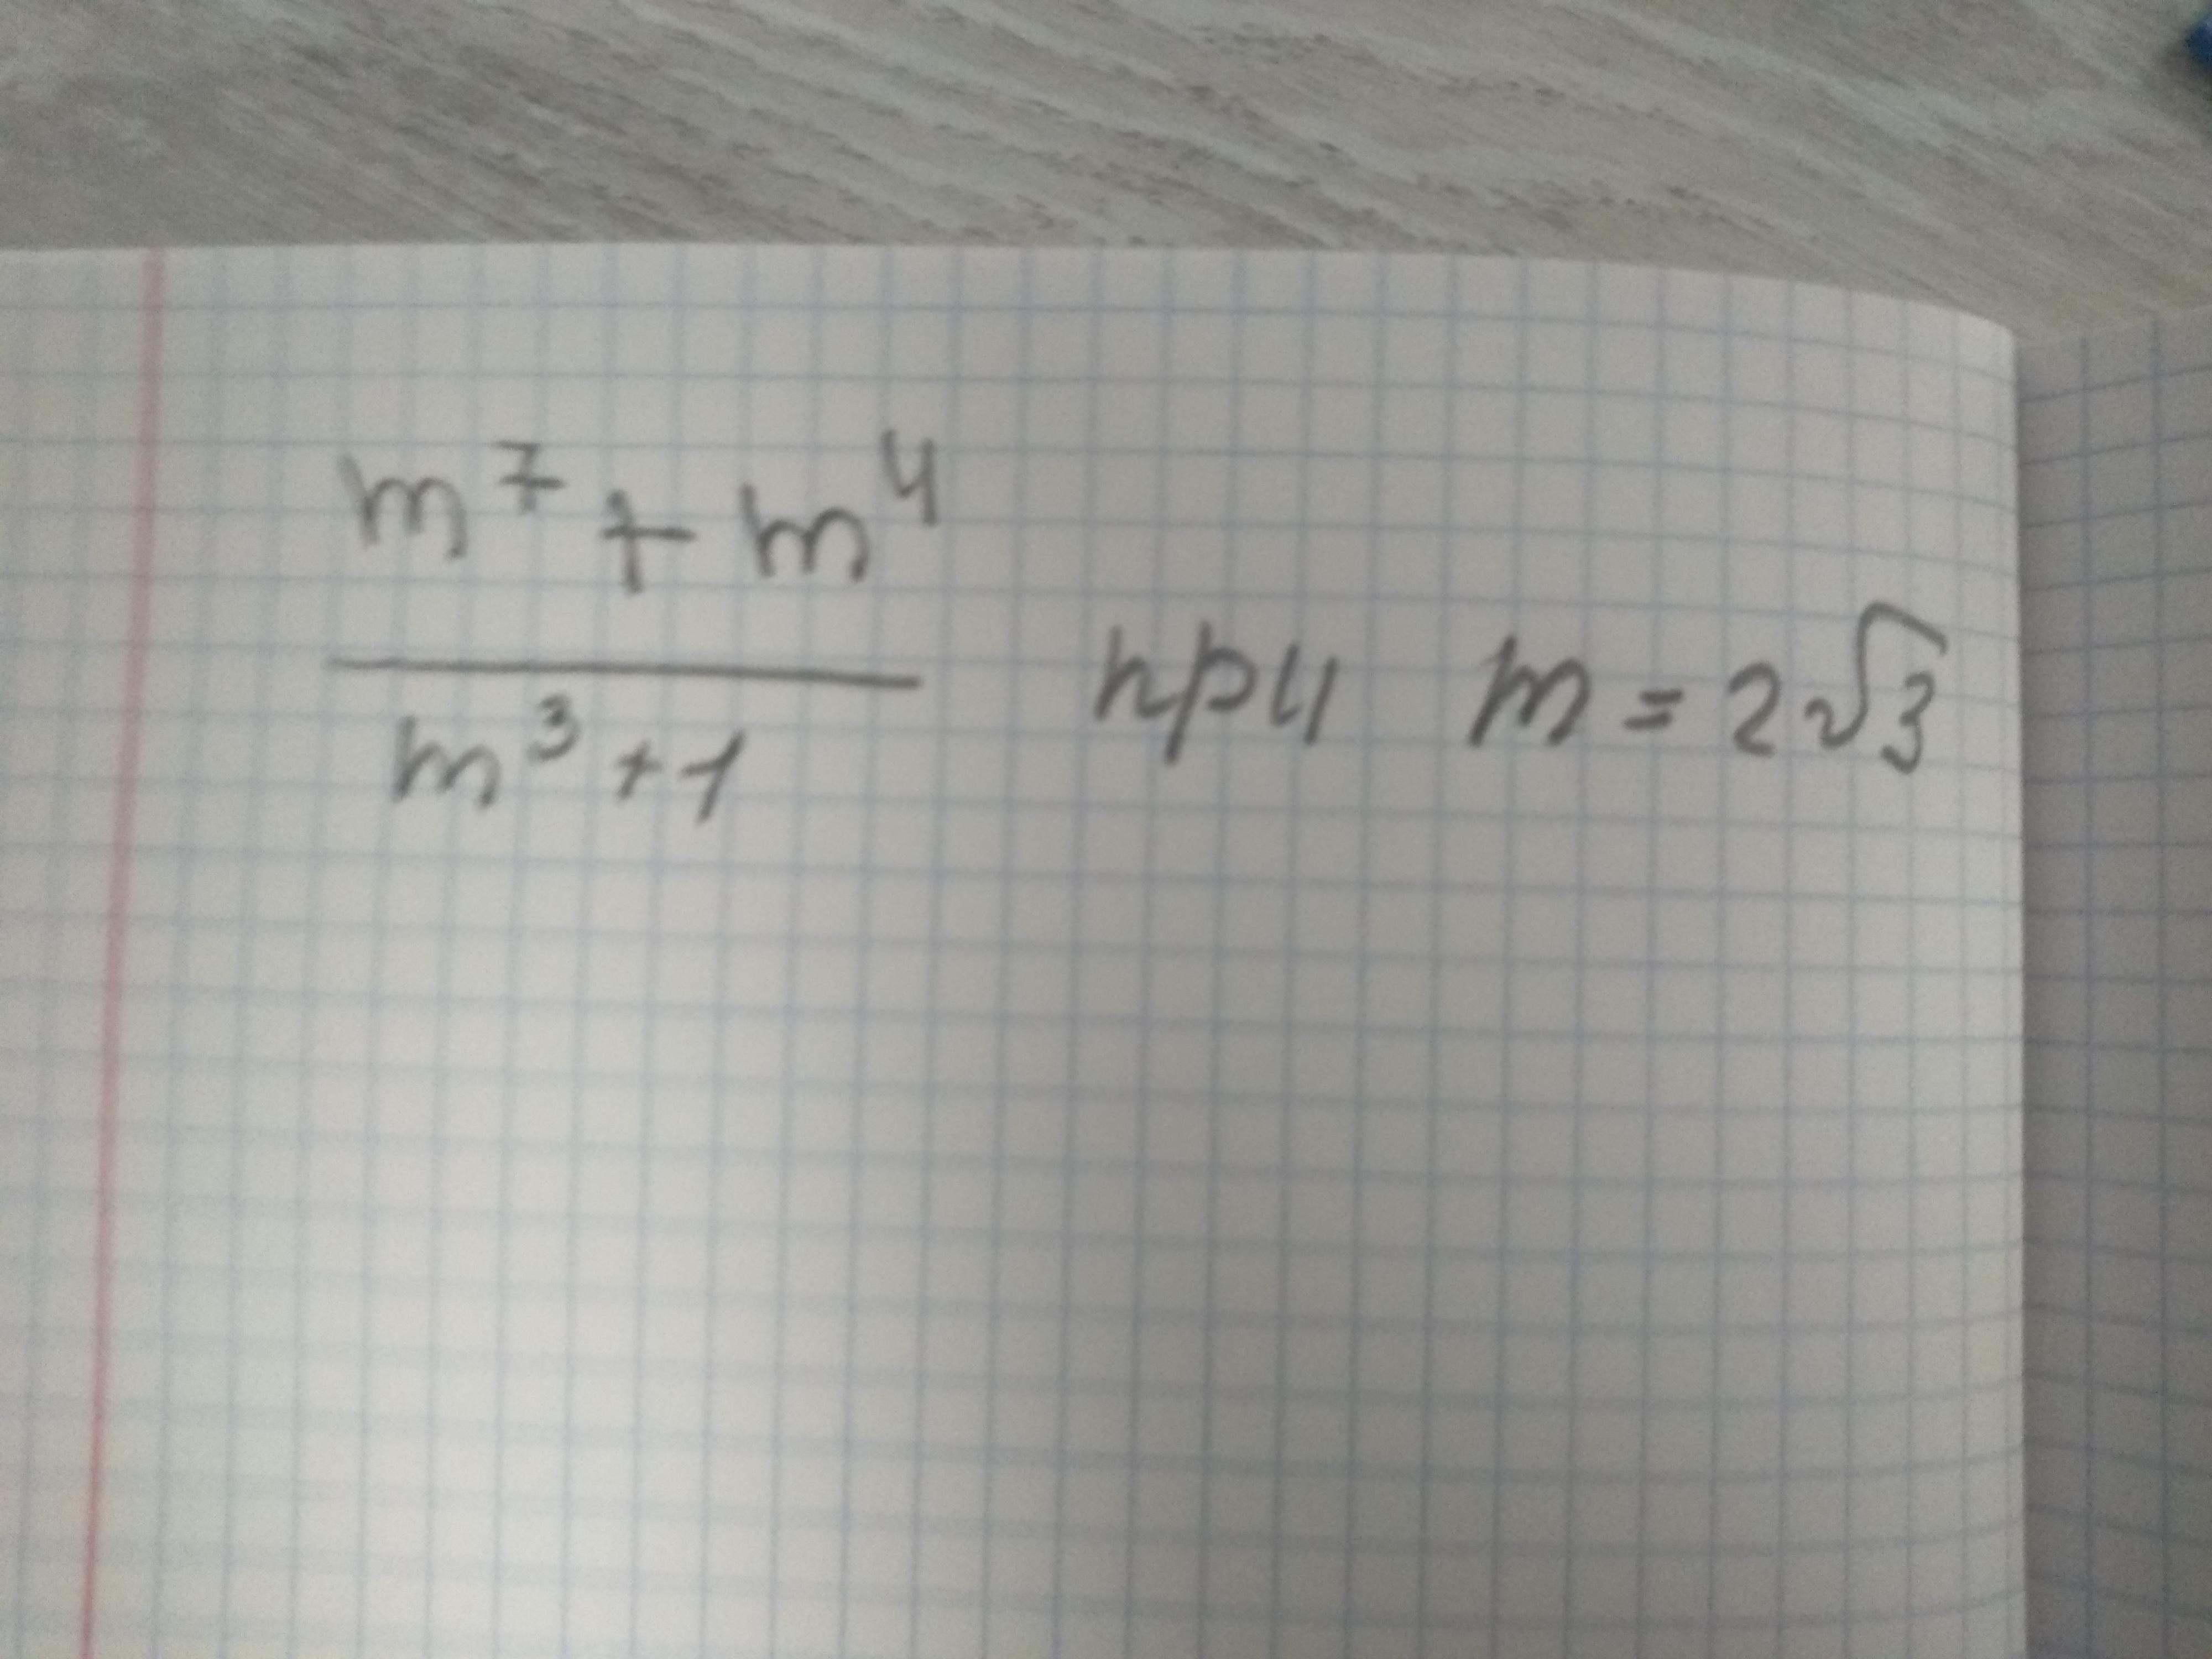 m⁷ + m⁴
m³ + 1
при m = 2√3